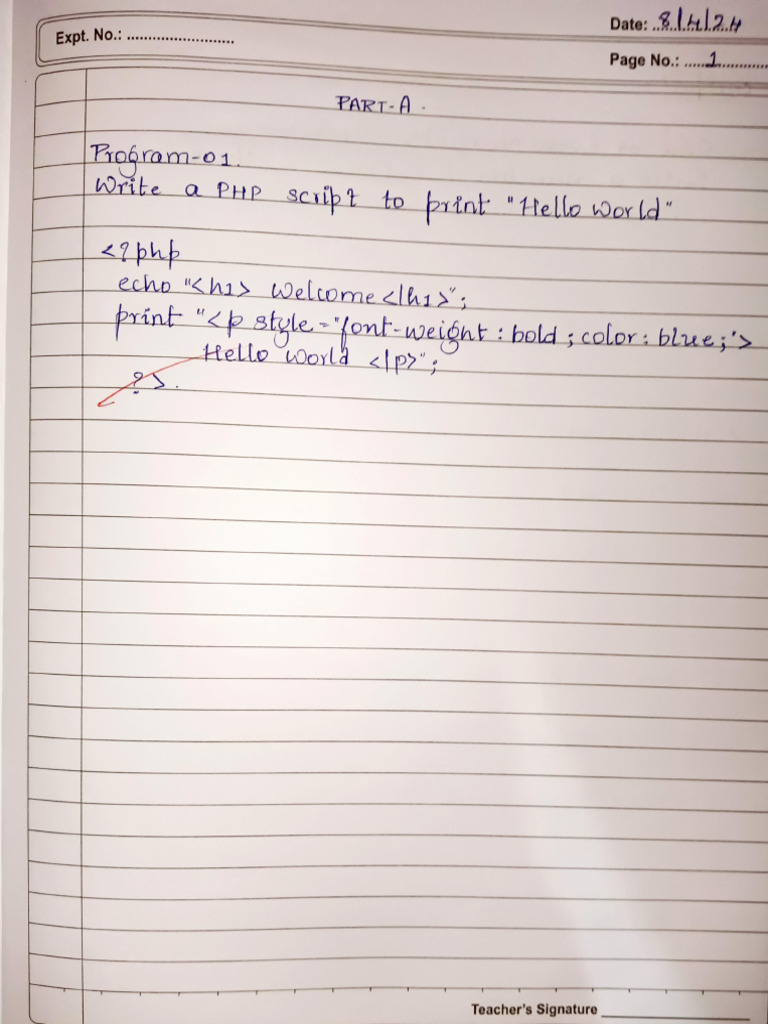 Expt. No.: ........................
Date: 8/4/24
Page No.: 1
PART-A.
Program-01.
Write a PHP script to print "Hello World"
<?php
echo "<h1> Welcome </h1>";
print "<p style="font-weight : bold ; color : blue ;'>
Hello World </p>";
?>.
Teacher's Signature